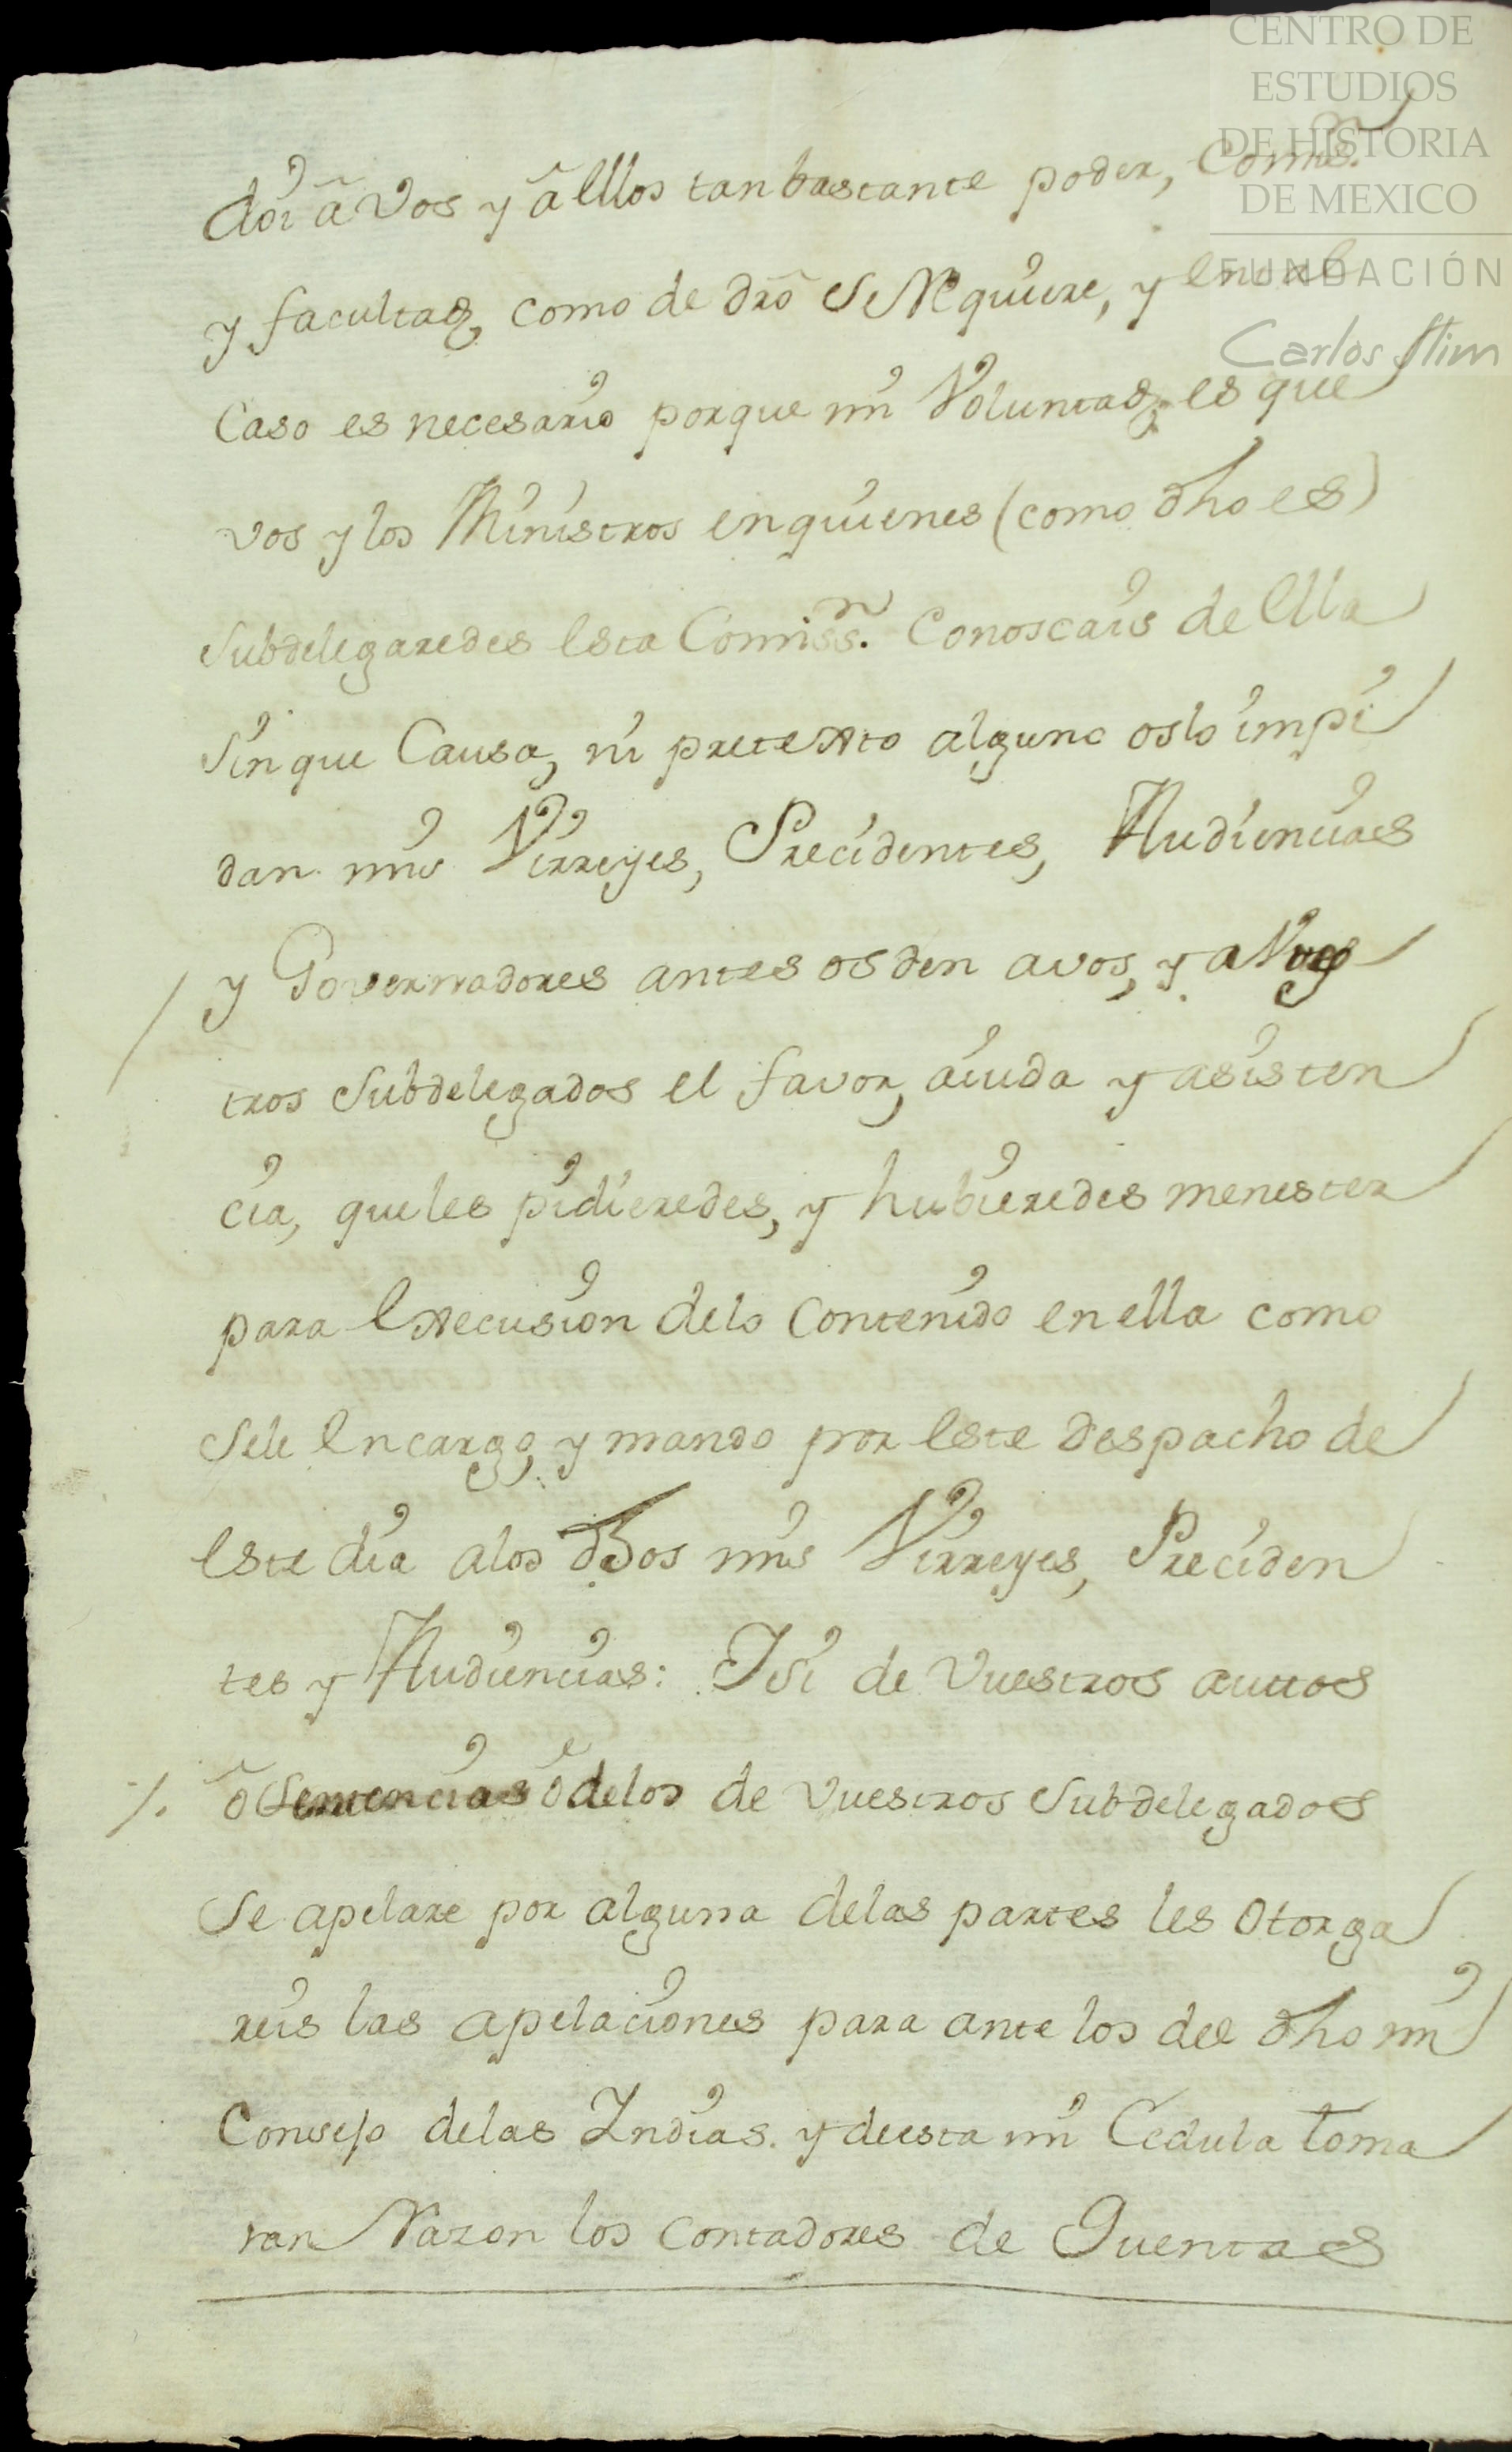 CENTRO DE
ESTUDIOS
DE HISTORIA
DE MEXICO
FUNDACIÓN
Carlos Slim
doi â Vos y â ellos tan bastante poder, Comiss.n
y facultad, como de dro se Requiere, y en tal
Caso es necesario porque mi Voluntad, es que
vos y los Ministros en quienes (como dho es)
Subdelegaredes esta Comiss.n Conoscais de ella
Sin que Causa, ni pretexto alguno os lo impi
dan mis Virreyes, Precidentes, Audiencias
/ y Governadores antes os den avos, y a Vues
tros Subdelegados el favor, aiuda y asisten
cia, que les pidieredes, y hubieredes menester
para Execusion delo Contenido en ella como
Sele Encargo, y mando por este Despacho de
este dia alos dhos mis Virreyes, Preciden
tes y Audiencias: Y si de Vuestros auttos
/. ô Sentencias ô delos de Vuestros Subdelegados
Se apelare por alguna delas partes les Otorga
reis las apelaciones para ante los del dho mi
Consejo delas Indias. y de esta mi Cedula toma
ran Razon los Contadores de Quentas